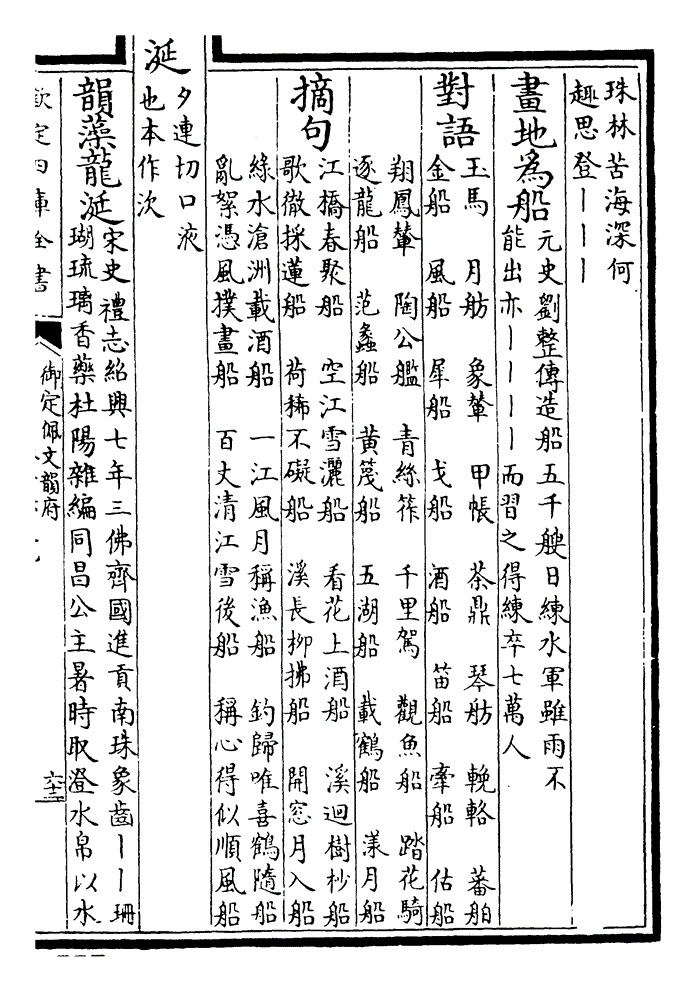 珠林苦海深何
趣思登丨丨丨
畫地為船元史劉整傳造船五千艘日練水軍雖雨不
能出亦丨丨丨丨而習之得練卒七萬人
對語
玉馬 月舫 象輦 甲帳 茶鼎 琴舫 輓輅 蕃舶
金船 風船 犀船 戈船 酒船 笛船 牽船 估船
翔鳳輦 陶公艦 青絲筰 千里駕 觀魚船 踏花騎
逐龍船 范蠡船 黃篾船 五湖船 載鶴船 漾月船
摘句
江橋春聚船 空江雪灑船 看花上酒船 溪迴樹杪船
歌徹採蓮船 荷稀不礙船 溪長柳拂船 開窓月入船
綠水滄洲載酒船 一江風月稱漁船 釣歸唯喜鶴隨船
亂絮憑風撲畫船 百丈清江雪後船 稱心得似順風船
涎
夕連切口液
也本作㳄
韻藻龍涎宋史禮志紹興七年三佛齊國進貢南珠象齒丨丨珊
瑚琉璃香藥杜陽雜編同昌公主暑時取澄水帛以水
欽定四庫全書
御定佩文韻府
六十二